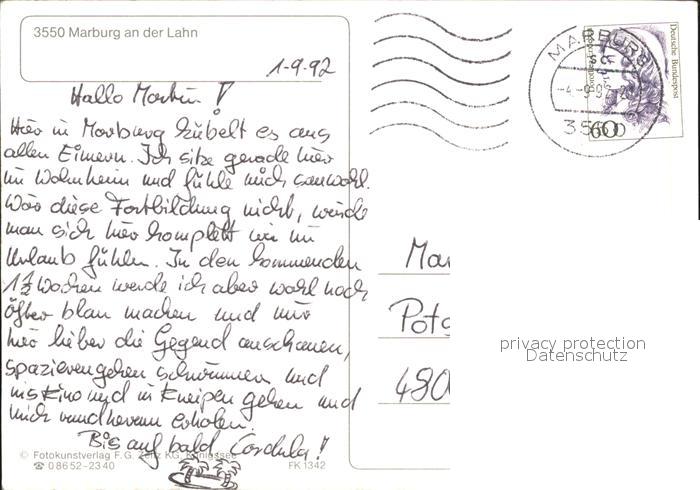 3550 Marburg an der Lahn
1-9-92
Hallo Martin!
Hier in Marburg kübelt es aus
allen Eimern. Ich sitze gerade hier
im Wohnheim und fühle mich sauwohl.
Wär diese Fortbildung nicht, würde
man sich hier komplett wie im
Urlaub fühlen. In den kommenden
1½ Wochen werde ich aber wohl noch
öfter blau machen und mir
hier lieber die Gegend anschauen,
spazierengehen schwimmen und
ins Kino und in Kneipen gehen und
mich rundherum erholen.
Bis auf bald Cordula!
© Fotokunstverlag F. G. Zeitz KG, Königssee
☎ 0 86 52 - 23 40
FK 1342
MARBURG
-4.-9.92
355
Deutsche Bundespost
60
Ma
Potg
480
privacy protection
Datenschutz